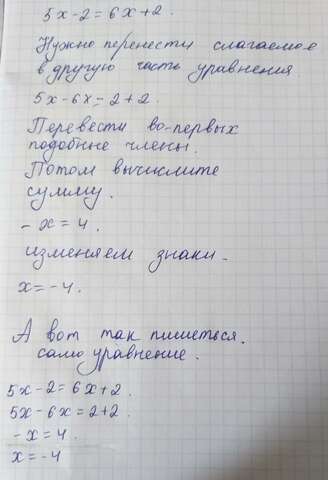 5x-2=6x+2.
Нужно перенести слагаемое
в другую часть уравнения
5x-6x=2+2.
Перевести во-первых
подобные члены.
Потом вычислите
сумму.
-x=4.
изменяем знаки.
x=-4.
А вот так пишеться.
само уравнение.
5x-2=6x+2.
5x-6x=2+2.
-x=4.
x=-4